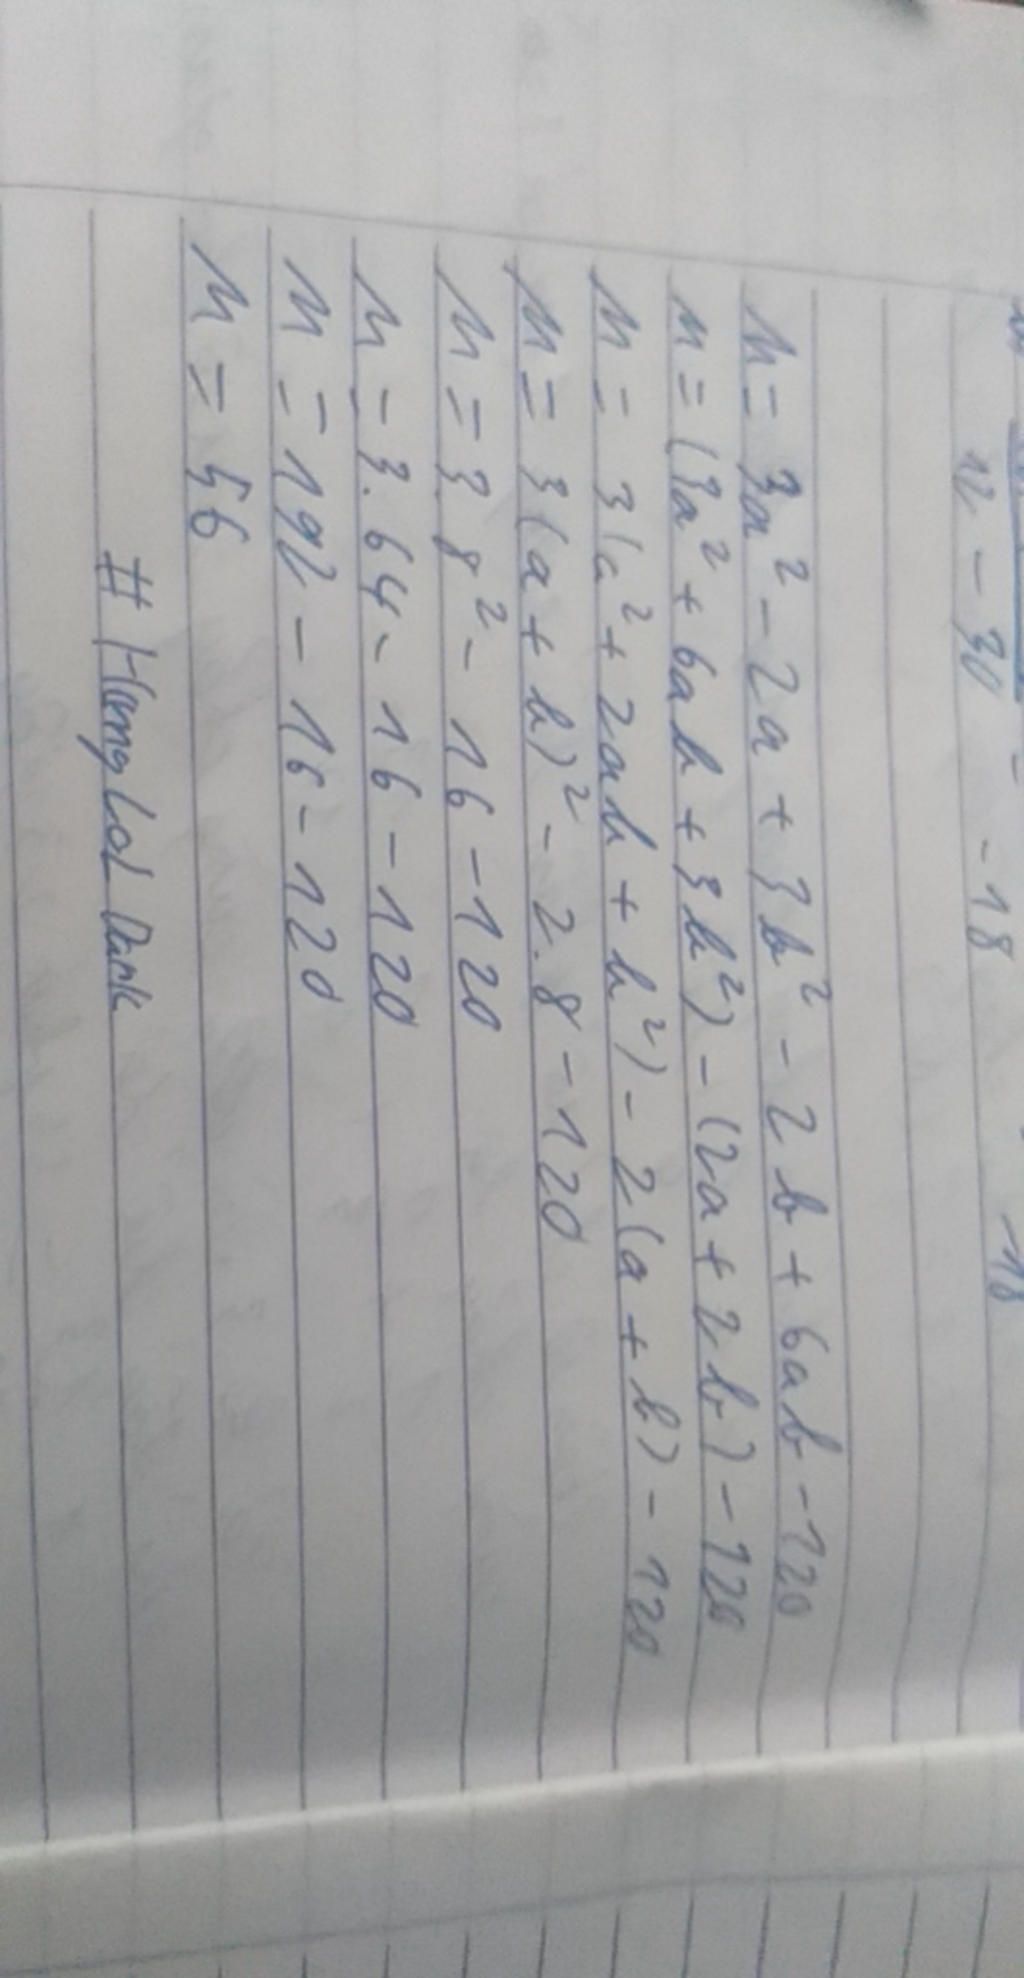 12 - 30 - 18 - 18
M = 3a² - 2a + 3b² - 2b + 6ab - 120
M = (3a² + 6ab + 3b²) - (2a + 2b) - 120
M = 3(a² + 2ab + b²) - 2(a + b) - 120
M = 3(a + b)² - 2.8 - 120
M = 3.8² - 16 - 120
M = 3.64 - 16 - 120
M = 192 - 16 - 120
M = 56